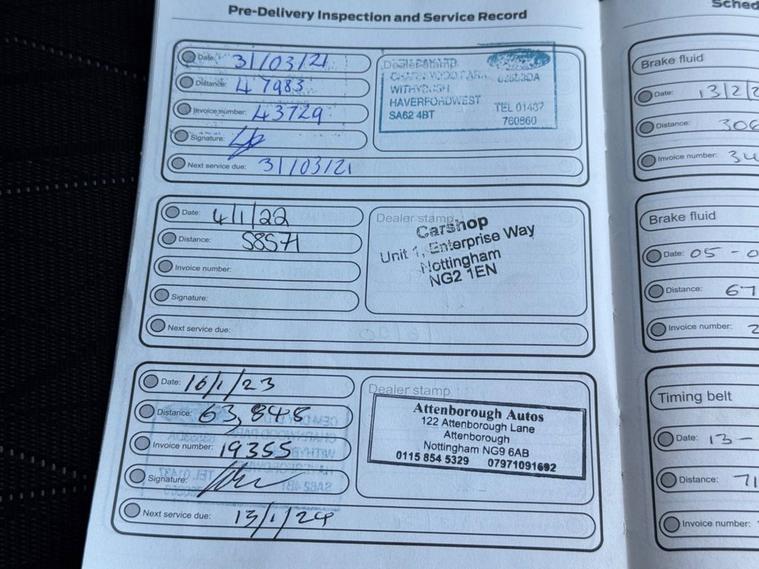 Pre-Delivery Inspection and Service Record
Date: 31/03/21
Distance: 47983
Invoice number: 43729
Signature:
Next service due: 31/03/21
Dealer stamp
WITHYBUSH
HAVERFORDWEST
SA62 4BT
TEL 01437
760860
Date: 4/1/22
Distance: 58571
Invoice number:
Signature:
Next service due:
Dealer stamp
Carshop
Unit 1, Enterprise Way
Nottingham
NG2 1EN
Date: 16/1/23
Distance: 63,848
Invoice number: 19355
Signature:
Next service due: 15/1/24
Dealer stamp
Attenborough Autos
122 Attenborough Lane
Attenborough
Nottingham NG9 6AB
0115 854 5329 07971091692
Sched
Brake fluid
Date: 13/2/2
Distance: 306
Invoice number: 34
Brake fluid
Date: 05-0
Distance: 67
Invoice number: 2
Timing belt
Date: 13-
Distance: 71
Invoice number: